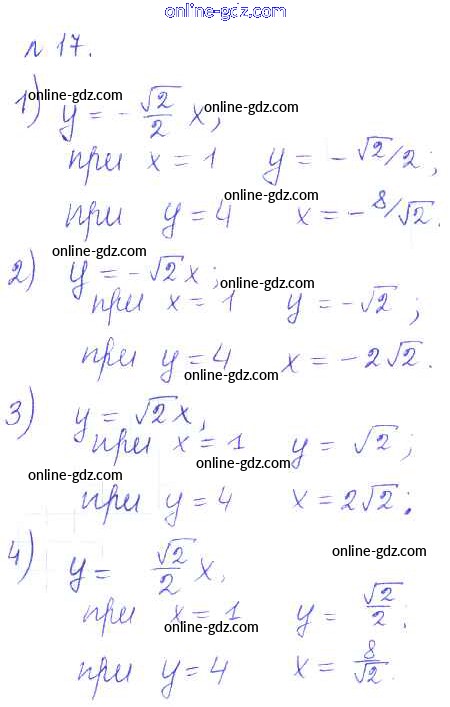 online-gdz.com
№ 17.
online-gdz.com
1) y = - √2/2 x, online-gdz.com
при x = 1 y = - √2/2;
online-gdz.com
при y = 4 x = - 8/√2.
online-gdz.com
2) y = - √2 x;
online-gdz.com
при x = 1 y = - √2;
при y = 4 x = - 2√2.
online-gdz.com
3) y = √2 x,
при x = 1 y = √2;
online-gdz.com
online-gdz.com
при y = 4 x = 2√2;
4) y = √2/2 x, online-gdz.com
при x = 1 y = √2/2;
online-gdz.com
при y = 4 x = 8/√2.